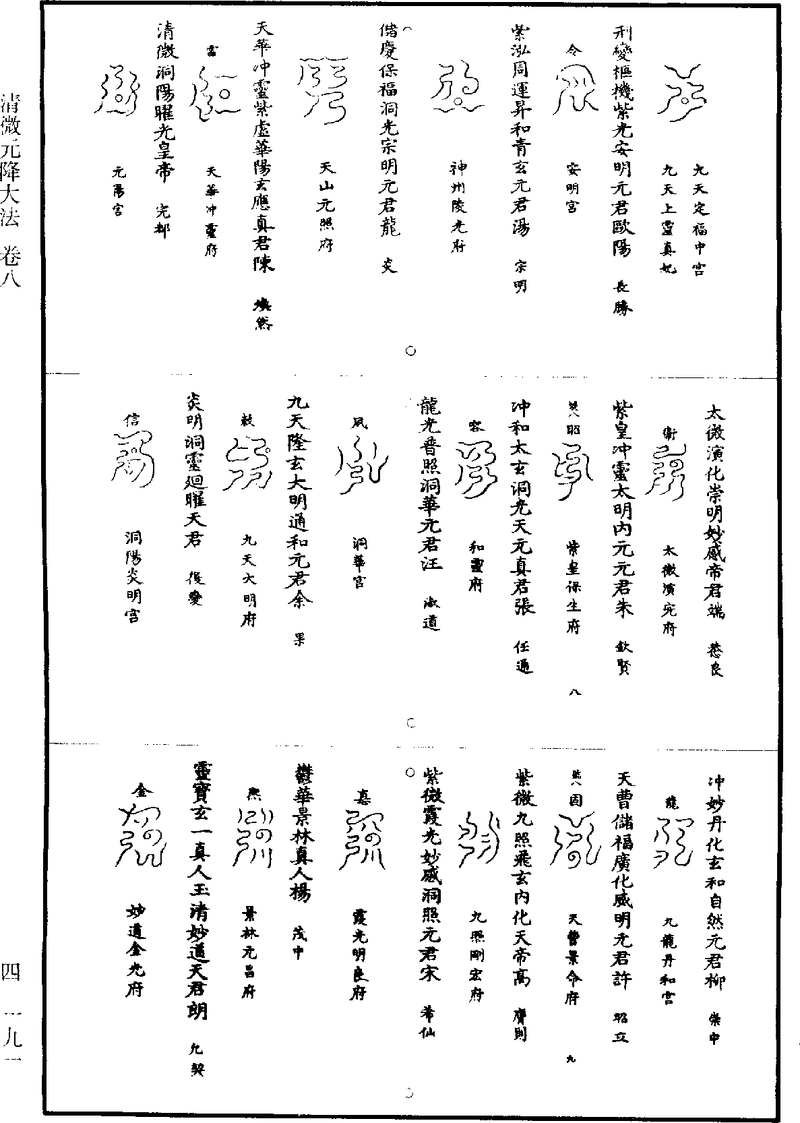 九天定福中宮
九天上靈真妃
刑變樞機紫光安明元君歐陽 長勝
令
安明宮
紫泓周運昇和青玄元君湯 宗明
神州陵光府
儲慶保福洞光宗明元君龍 炎
天山元照府
天華冲靈紫虛華陽玄應真君陳 煥然
雷
天華冲靈府
清微洞陽曜光皇帝 完都
元陽宮
太微演化崇明妙感帝君端 慈良
衛
太微演宪府
紫皇冲靈太明內元元君朱 欽賢
昭
紫皇保生府 八
冲和太玄洞光天元真君張 任通
容
和靈府
龍光普照洞華元君汪 淑道
夙
洞華宮
九天隆玄大明通和元君余 杲
九天大明府
炎明洞靈廻曜天君 復變
信
洞陽炎明宮
冲妙丹化玄和自然元君柳 崇中
龍
九龍丹和宮
天曹儲福廣化威明元君許 昭立
固
天曹景命府 九
紫微九照飛玄內化天帝高 膺則
九照剛宏府
紫微霞光妙感洞照元君宋 希仙
嘉
霞光明良府
鬱華景林真人楊 茂中
熙
景林元昌府
靈寶玄一真人玉清妙道天君朗 九契
金
妙道金光府
清微元降大法 卷八
四 一九一